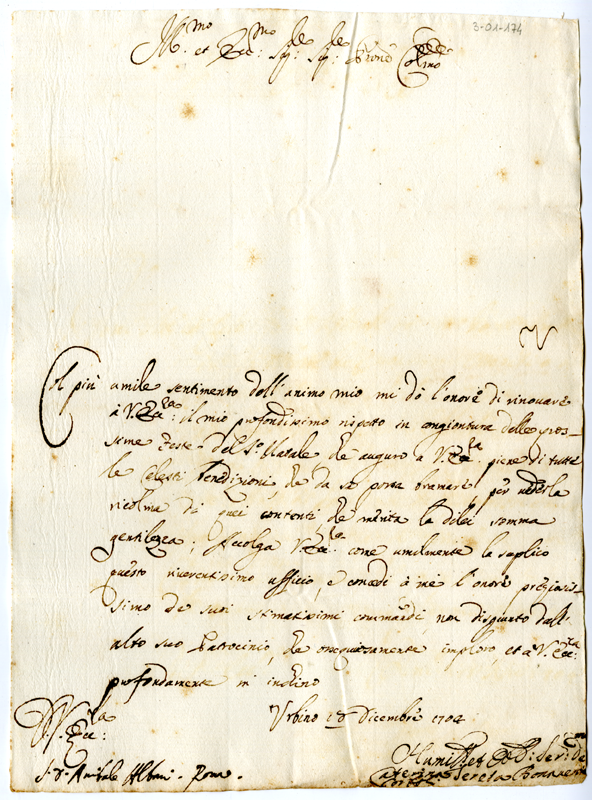 3-01-174
Ill.mo et Ecc.mo Sig.re Sig.re Prone Col.mo
Col più umile sentimento dell'animo mio mi dò l'onore di rinovare
à V. Ecc.za il mio profondissimo rispetto in congiontura delle pros-
sime Feste del S.o Natale che auguro a V. Ecc.za piene di tutte
le Celesti Benedizioni, che da se possa bramare, per vederla
ricolma di quei contenti che mérita la di lei somma
gentilezza; Accolga V. Ecc.za come umilmente la suplico
questo riverentissimo ufficio, e concedi à me l'onore preziosis-
simo de suoi stimatissimi commandi, non disgiunto dall'
alto suo Patrocinio, che ossequiosamente imploro, et a V. Ecc.za
profondamente m'inchino
Urbino Dicembre 1704
V. Ecc.za
S. D. Anibale Albani. Roma.
Humil.ma et Serv.
Caterina Bonaven